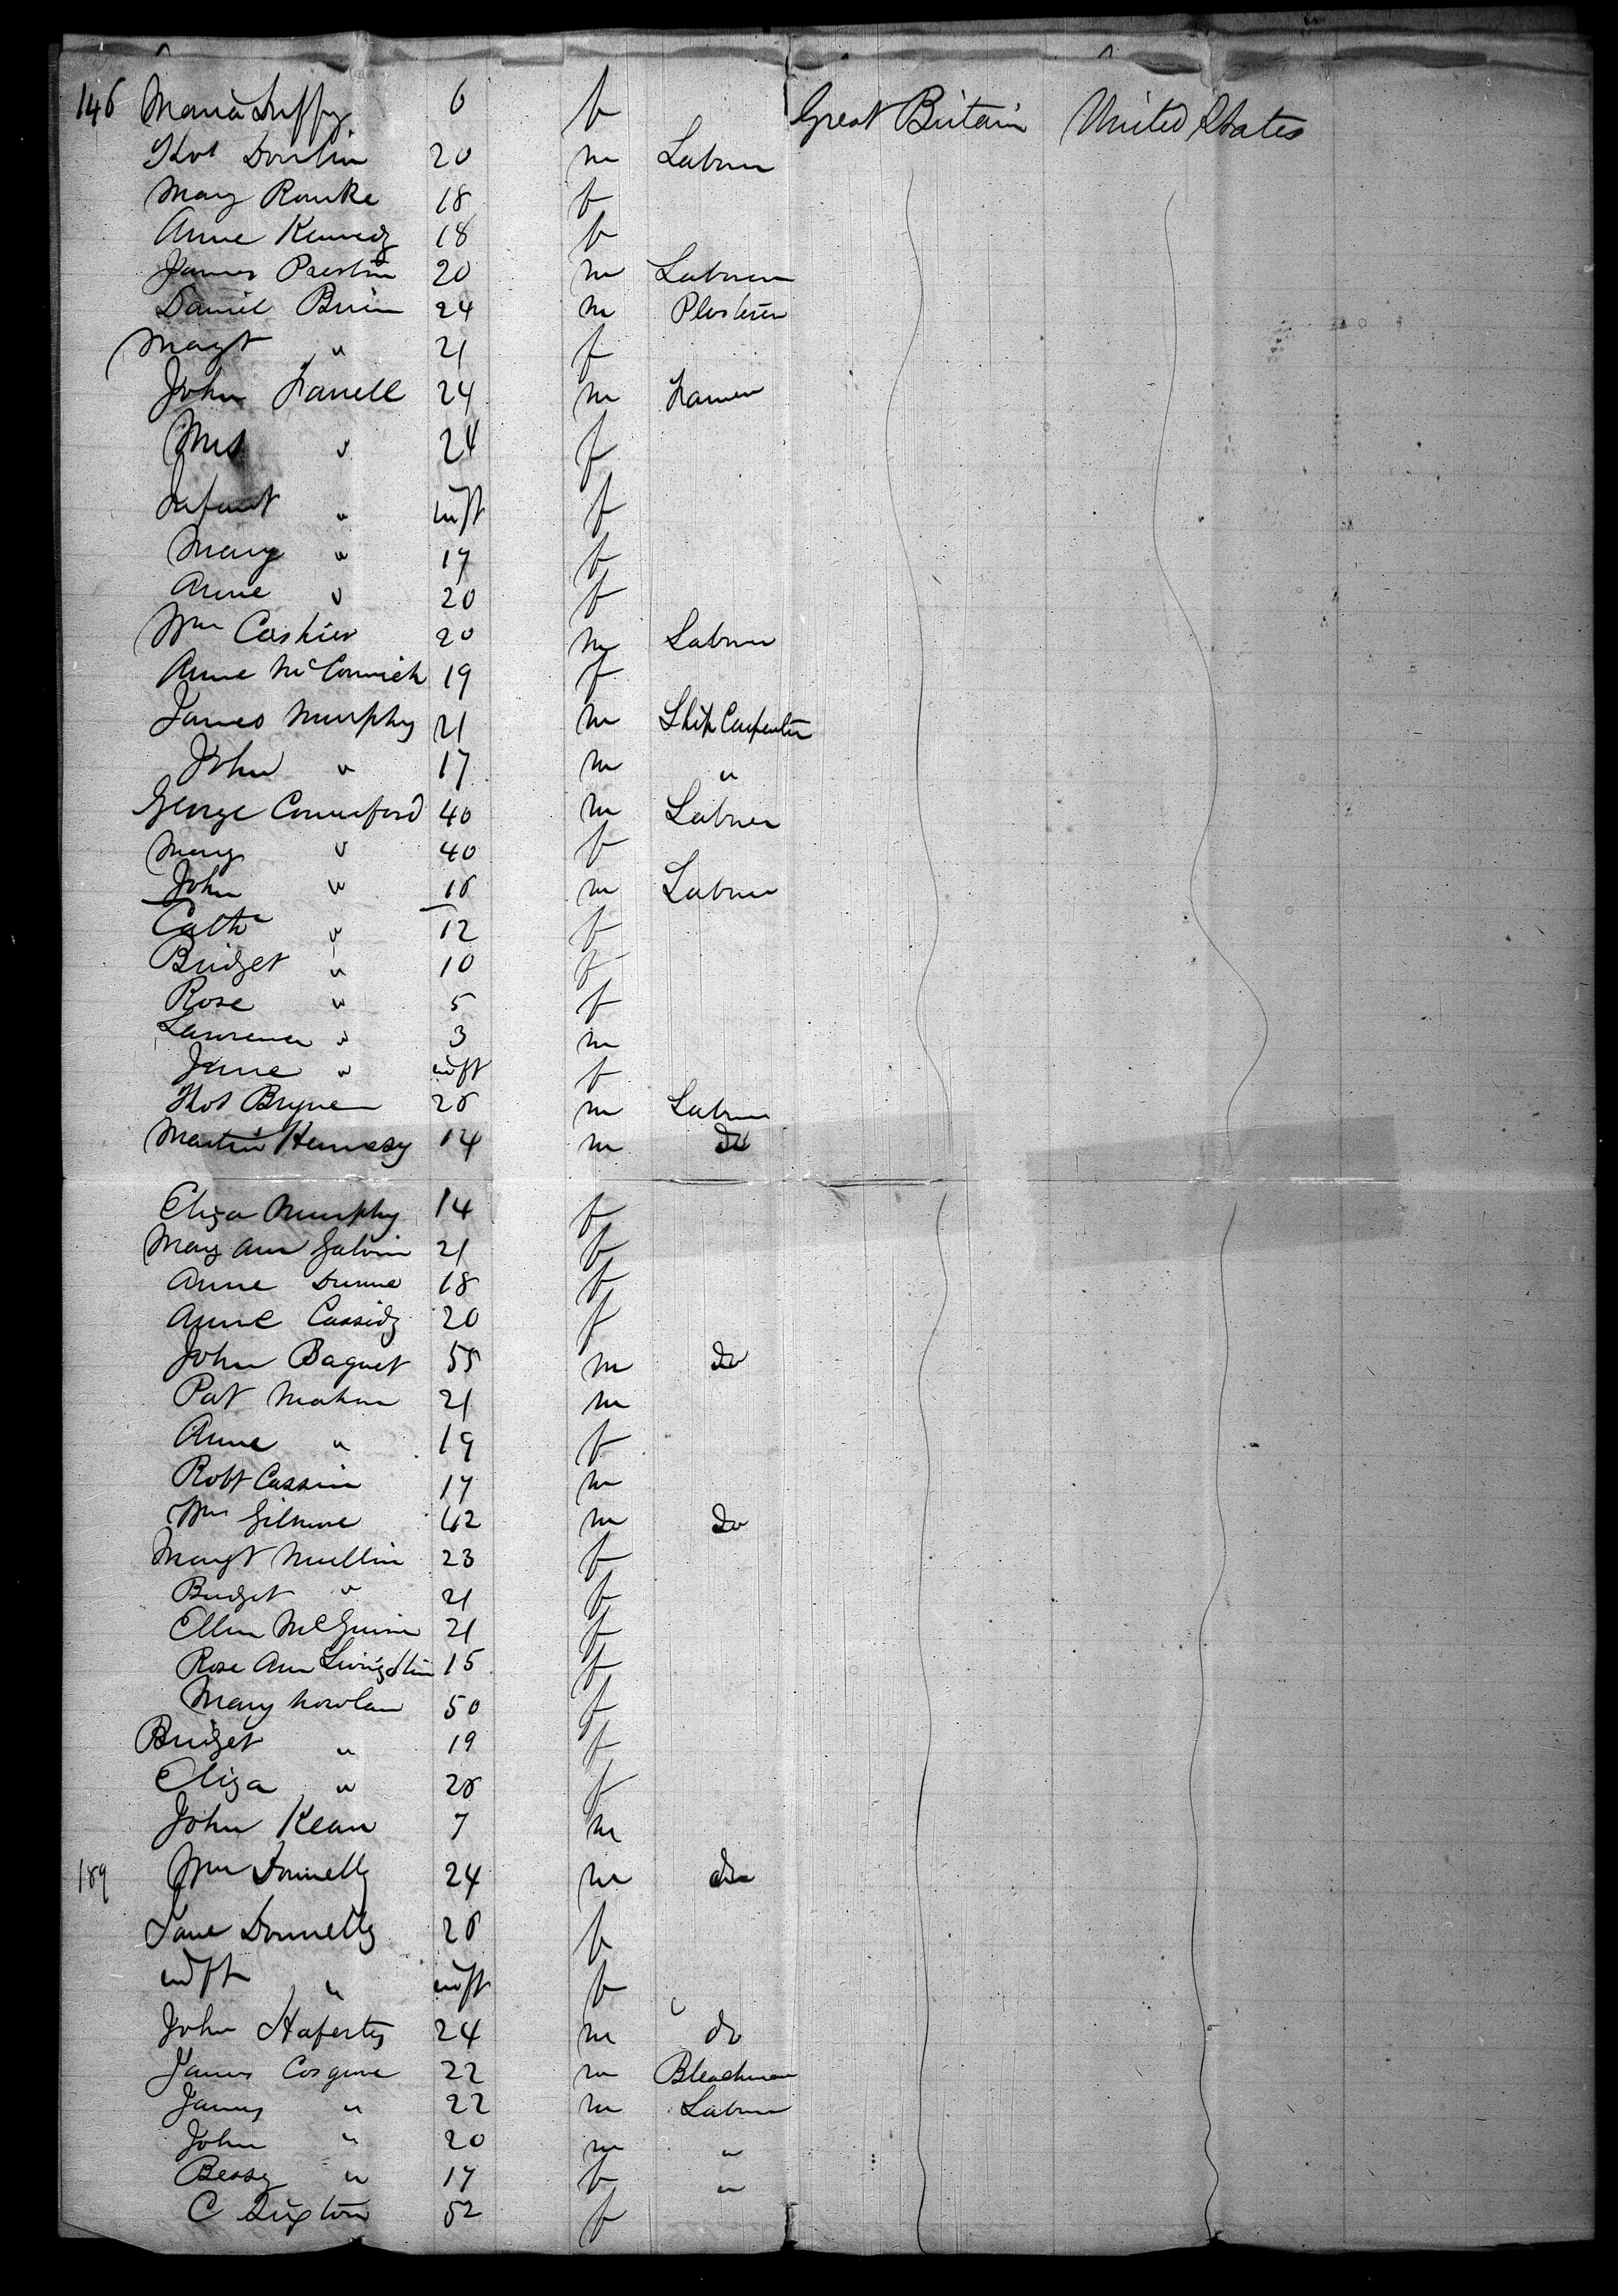 146 Maria Duffy 6 f Great Britain United States
Thos 20 m Labourer
Mary Rourke 18 f
Anne Kennedy 18 f
James Preston 20 m Labourer
Daniel 24 m Plasterer
Margt " 21 f
John Farrell 24 m Farmer
Mrs " 24 f
Infant " inft f
Mary " 17 f
Anne " 20 f
Wm Cashier 20 m Labourer
Anne McCormick 19 f
James Murphy 21 m Ship Carpenter
John " 17 m "
George 40 m Labourer
Mary " 40 f
John " m Labourer
Cathe " 12 f
Bridget " 10 f
Rose " 5 f
Lawrence " 3 m
Jane " inft f
Thos m Labourer
Martin Hennesy 14 m Do
Eliza Murphy 14 f
Mary Ann Galvin 21 f
Anne Dunne 18 f
Anne Cassidy 20 f
John Bagnet 55 m Do
Pat Mahon 21 m
Anne " 19 f
Robt Cassin 17 m
Wm Gilmore 42 m Do
Margt Mullin 23 f
Bridget " 21 f
Ellen 21 f
Rose Ann 15 f
Mary Nowlan 50 f
Bridget " 19 f
Eliza " f
John Kean 7 m
189 Wm Donnelly 24 m do
Jane Donnelly f
inft " inft f
John Haferty 24 m do
James 22 m
James " 22 m Labourer
John " 20 m "
Bessy " 17 f "
C f